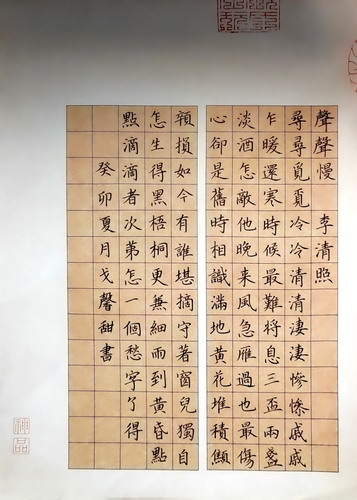 聲聲慢 李清照
尋尋覓覓冷冷清清淒淒慘慘戚戚
乍暖還寒時候最難將息三盃兩盞
淡酒怎敵他晚來風急雁過也最傷
心卻是舊時相識滿地黃花堆積顦
顇損如今有誰堪摘守著窗兒獨自
怎生得黑梧桐更無細雨到黃昏點
點滴滴者次第怎一個愁字了得
癸卯夏月戈馨甜書
神品